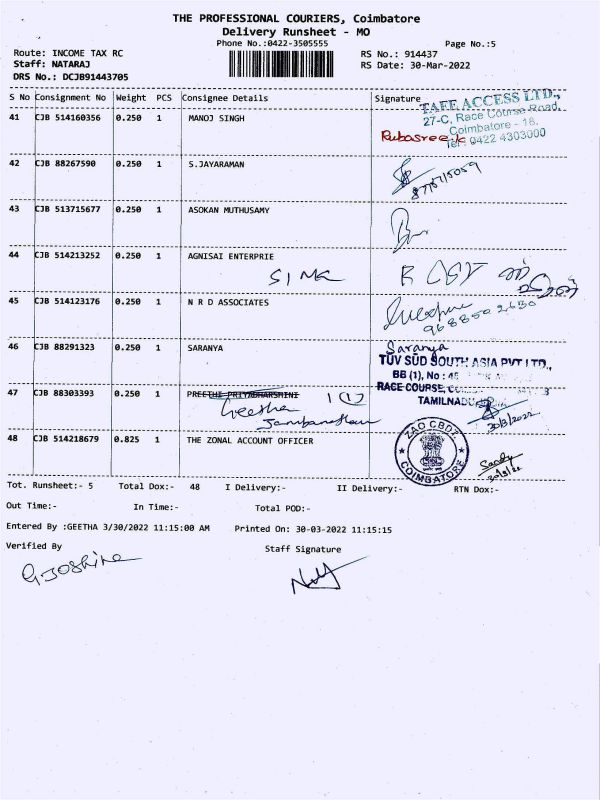 THE PROFESSIONAL COURIERS, Coimbatore
Delivery Runsheet - MO
Phone No.:0422-3505555
Page No.:5
Route: INCOME TAX RC
RS No.: 914437
Staff: NATARAJ
RS Date: 30-Mar-2022
DRS No.: DCJB91443705
S No Consignment No Weight PCS Consignee Details Signature
TAFE ACCESS LTD.,
41 CJB 514160356 0.250 1 MANOJ SINGH
27-C, Race Course Road,
Coimbatore - 18.
Rubasree
Tel: 0422 4303000
42 CJB 88267590 0.250 1 S.JAYARAMAN
43 CJB 513715677 0.250 1 ASOKAN MUTHUSAMY
44 CJB 514213252 0.250 1 AGNISAI ENTERPRIE
45 CJB 514123176 0.250 1 N R D ASSOCIATES
46 CJB 88291323 0.250 1 SARANYA
Saranya
TÜV SÜD SOUTH ASIA PVT LTD.,
BB (1), No :
RACE COURSE,
47 CJB 88303393 0.250 1 PREETHI PRIYADHARSHINI
TAMILNADU
Geetha
30/3/2022
48 CJB 514218679 0.825 1 THE ZONAL ACCOUNT OFFICER
ZAO CBDT
COIMBATORE
Sandy
30/3/22
Tot. Runsheet:- 5 Total Dox:- 48 I Delivery:- II Delivery:- RTN Dox:-
Out Time:- In Time:- Total POD:-
Entered By :GEETHA 3/30/2022 11:15:00 AM Printed On: 30-03-2022 11:15:15
Verified By Staff Signature
G.Joshina